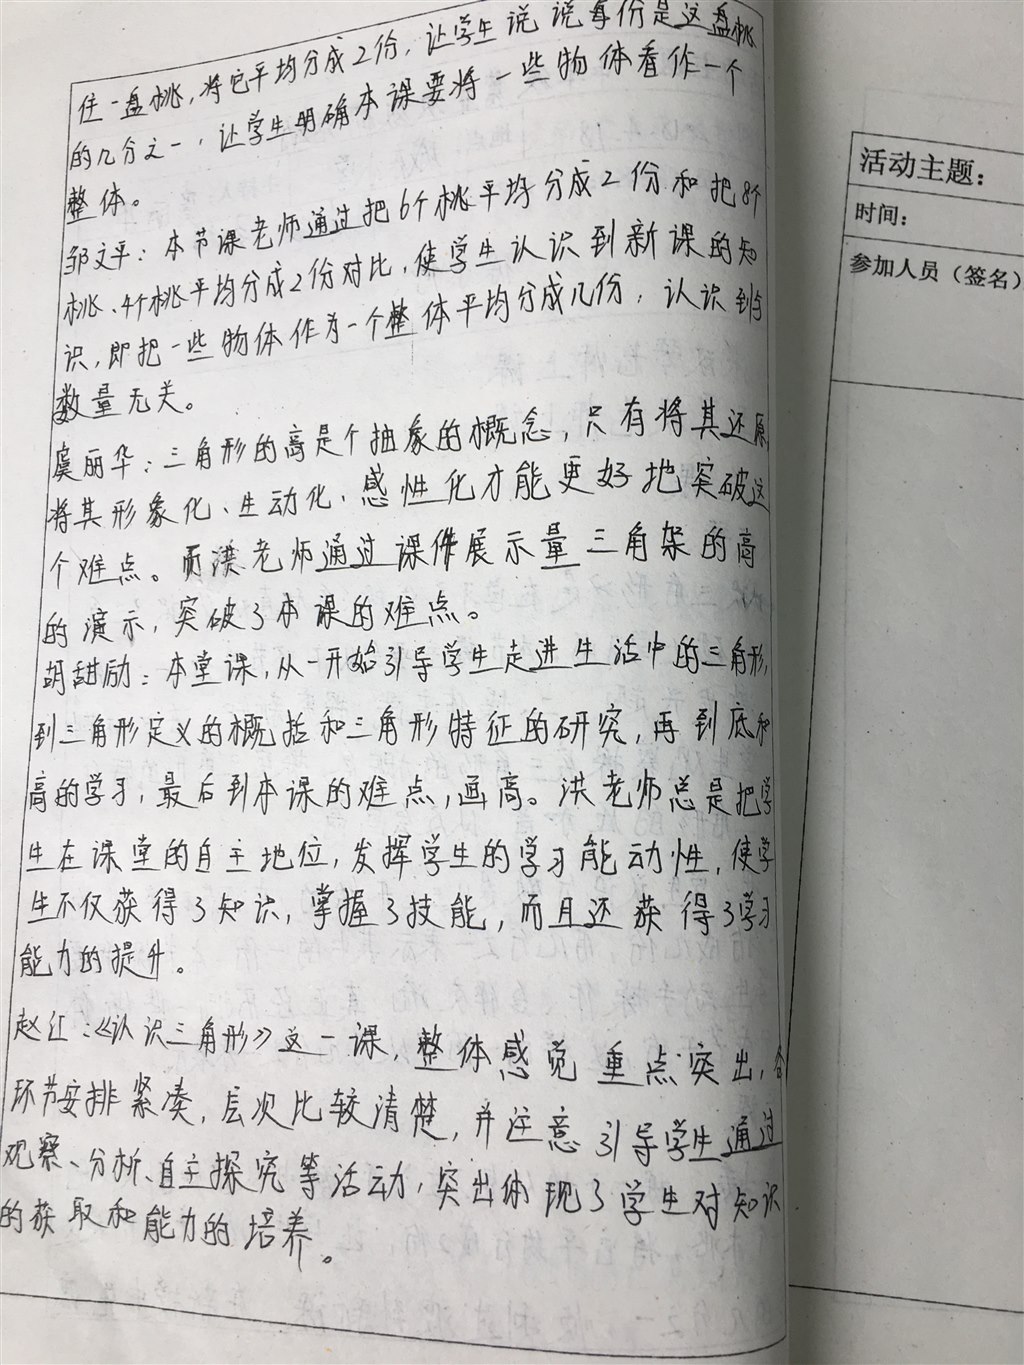 住一盘桃,将它平均分成2份,让学生说说每份是这盘桃
的几分之一,让学生明确本课要将一些物体看作一个
整体。
邹文平:本节课老师通过把6个桃平均分成2份和把8个
桃、4个桃平均分成2份对比,使学生认识到新课的知
识,即把一些物体作为一个整体平均分成几份,认识到与
数量无关。
虞丽华:三角形的高是个抽象的概念,只有将其还原
将其形象化、生动化、感性化才能更好地突破这
个难点。而洪老师通过课件展示量三角架的高
的演示,突破了本课的难点。
胡甜励:本堂课,从一开始引导学生走进生活中的三角形,
到三角形定义的概括和三角形特征的研究,再到底和
高的学习,最后到本课的难点,画高。洪老师总是把学
生在课堂的自主地位,发挥学生的学习能动性,使学
生不仅获得了知识,掌握了技能,而且还获得了学习
能力的提升。
赵红:《认识三角形》这一课,整体感觉重点突出,各
环节安排紧凑,层次比较清楚,并注意引导学生通过
观察、分析、自主探究等活动,突出体现了学生对知识
的获取和能力的培养。
活动主题:
时间:
参加人员(签名)